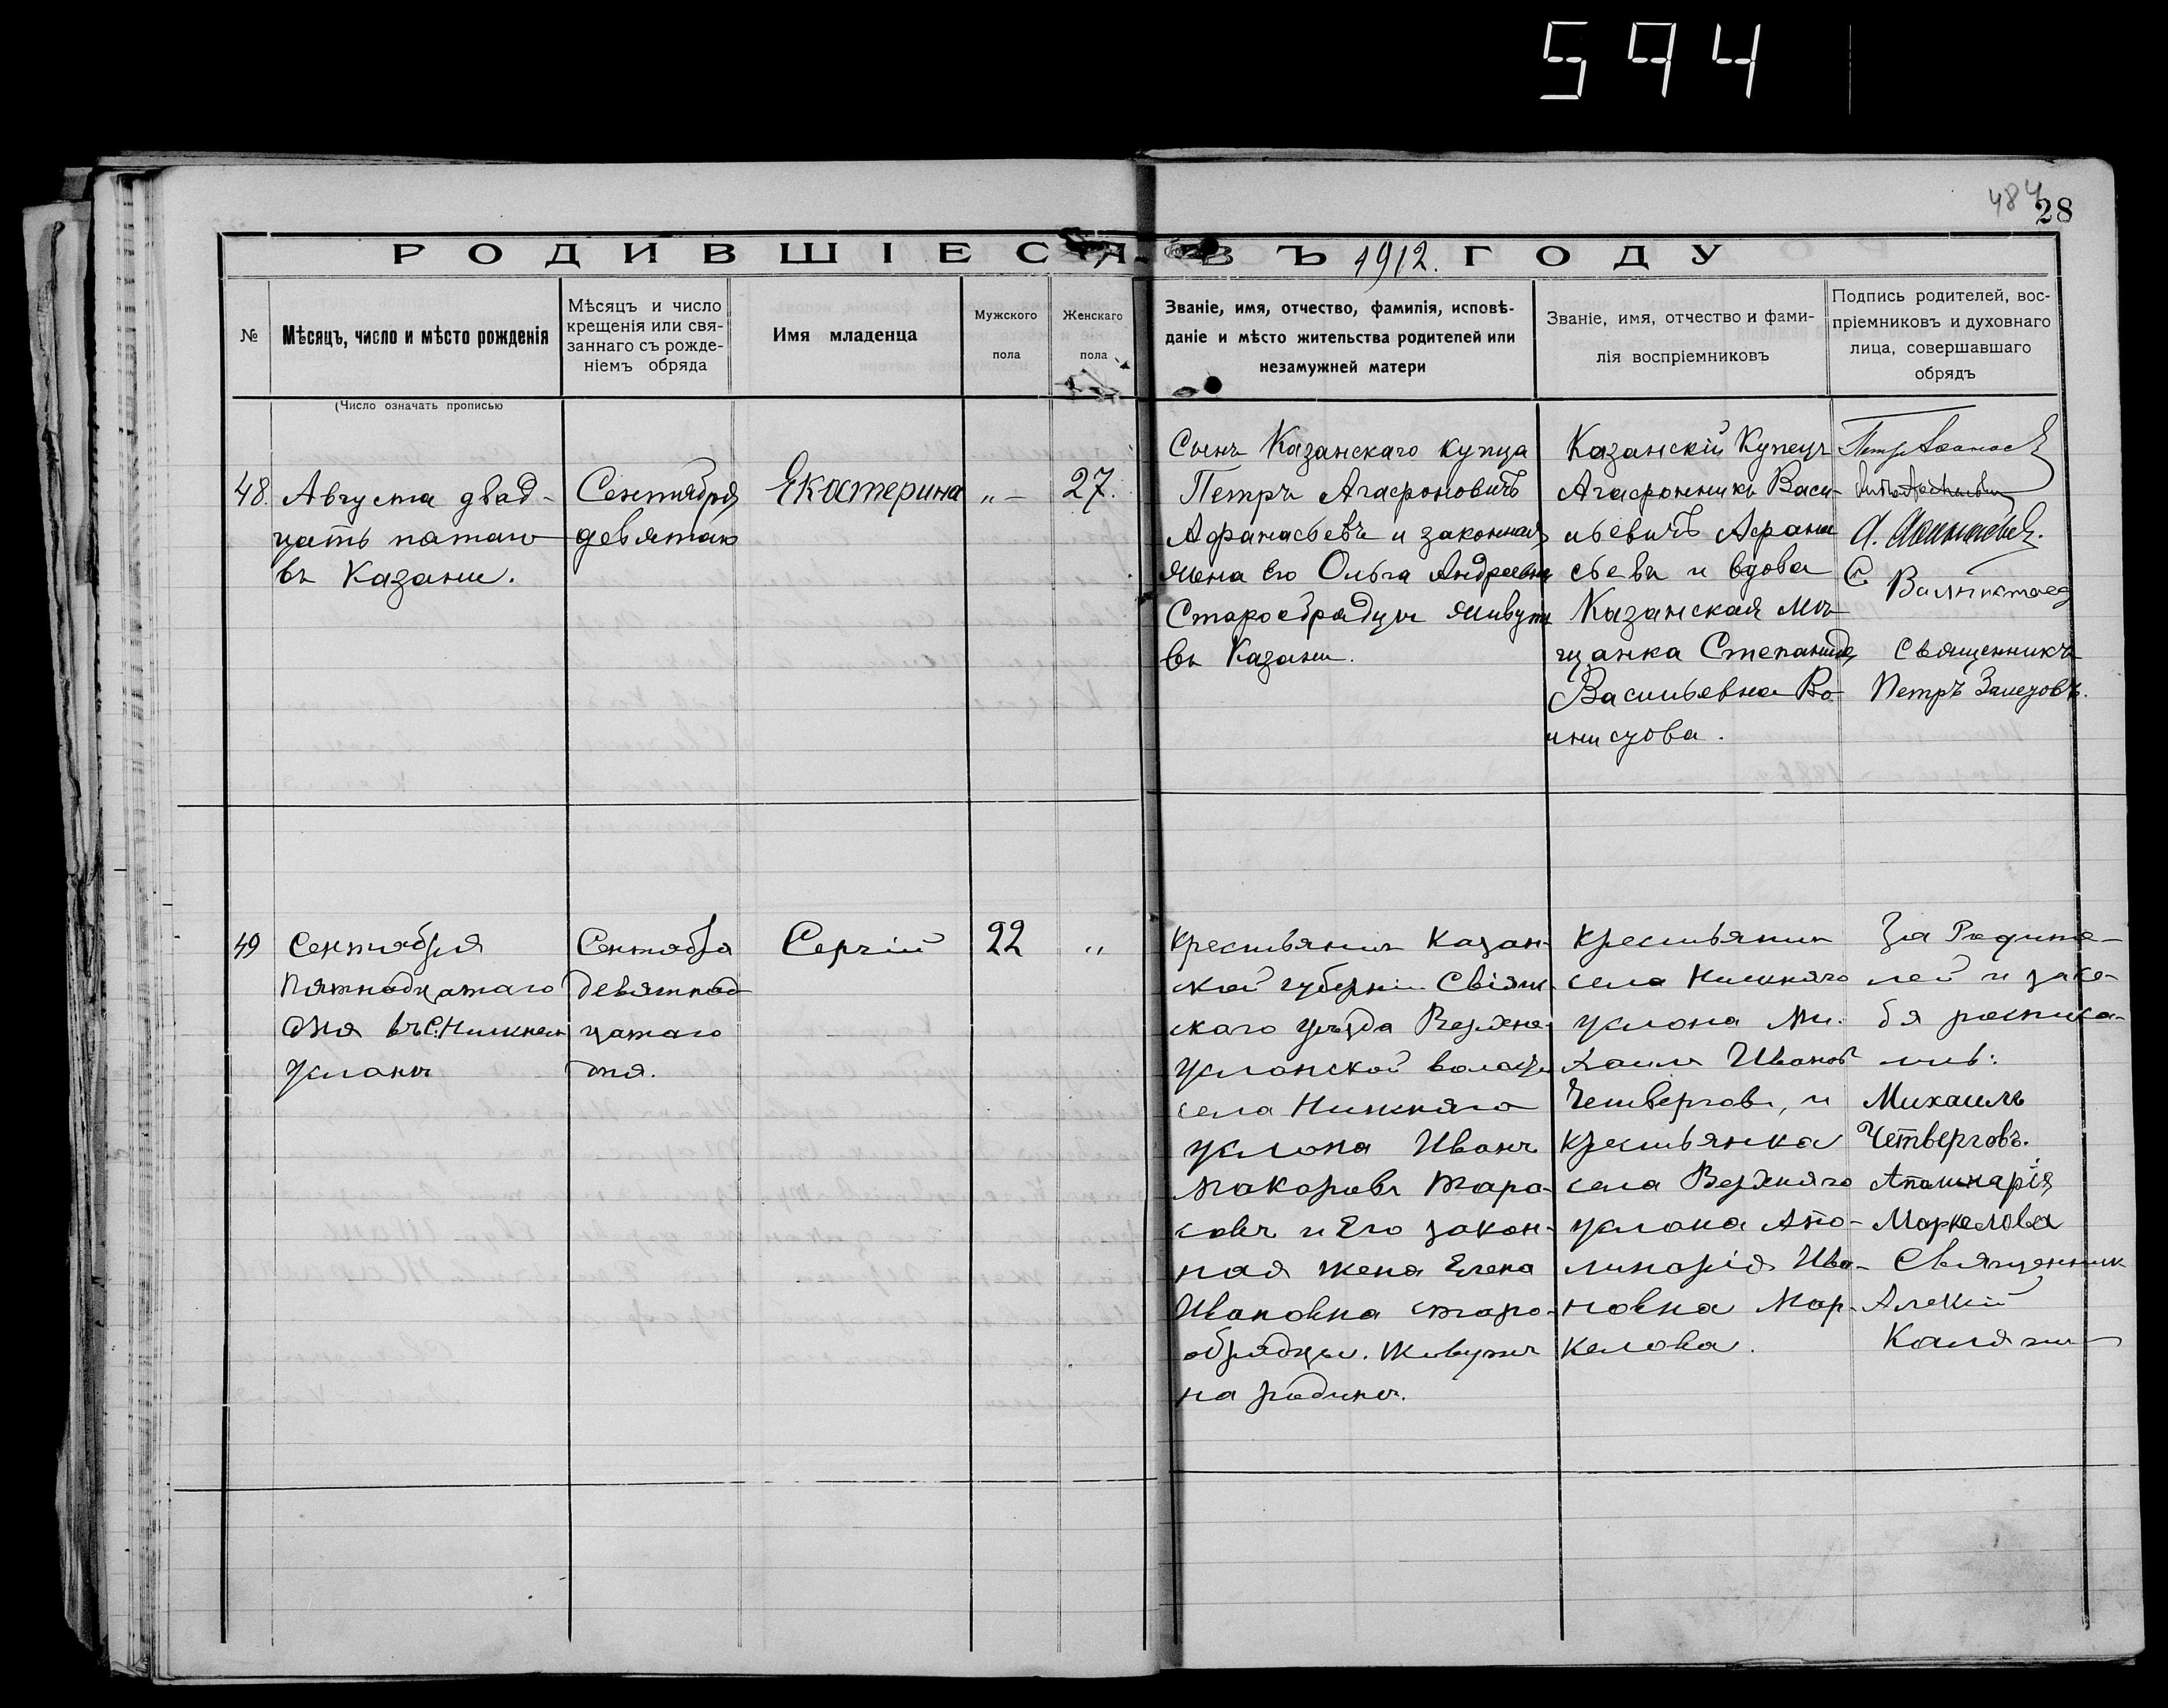 594
484
28
РОДИВШІЕСЯ ВЪ 1912. ГОДУ
№
Мѣсяцъ, число и мѣсто рожденія
Мѣсяцъ и число
крещенія или свя-
заннаго съ рожде-
ніемъ обряда
Имя младенца
Мужского
пола
Женскаго
пола
Званіе, имя, отчество, фамилія, исповѣ-
даніе и мѣсто жительства родителей или
незамужней матери
Званіе, имя, отчество и фами-
лія воспріемниковъ
Подпись родителей, вос-
пріемниковъ и духовнаго
лица, совершавшаго
обрядъ
(Число означать прописью
48.
Августа двад-
цать пятаго
въ Казани.
Сентября
девятаго
Екатерина
„ —
27.
Сынъ Казанскаго купца
Петръ Агафоновичъ
Афанасьевъ и законная
жена его Ольга Андреевна
Старообрядцы живутъ
въ Казани.
Казанскій Купецъ
Агафонникъ Васи-
льевичъ Афана
сьевъ и вдова
Казанская мѣ-
щанка Степанида
Васильевна
Петръ
А. Афанасьев.
С.
Священникъ
Петръ Залетовъ.
49
Сентября
Пятнадцатаго
дня въ С. Нижнемъ
Услонѣ
Сентября
девятнад
цатаго
дня.
Сергій
22
„
Крестьянинъ Казан-
ской губерніи Свіяж-
скаго уѣзда Верхне-
Услонской волости
села Нижняго
Услона Иванъ
Макаровъ Тара-
совъ и Его закон-
ная жена Елена
Ивановна старо-
обрядцы. Живутъ
на родинѣ.
Крестьянин
села Нижняго
Услона Ми-
хаилъ Иванов
Четверговъ, и
крестьянка
села Верхняго
Услона Апо-
линарія Ива-
новна Мар-
келова.
За Родите-
лей и за се-
бя росписа-
лись:
Михаилъ
Четверговъ.
Аполинарія
Маркелова
Священник
Алексій
Калягин